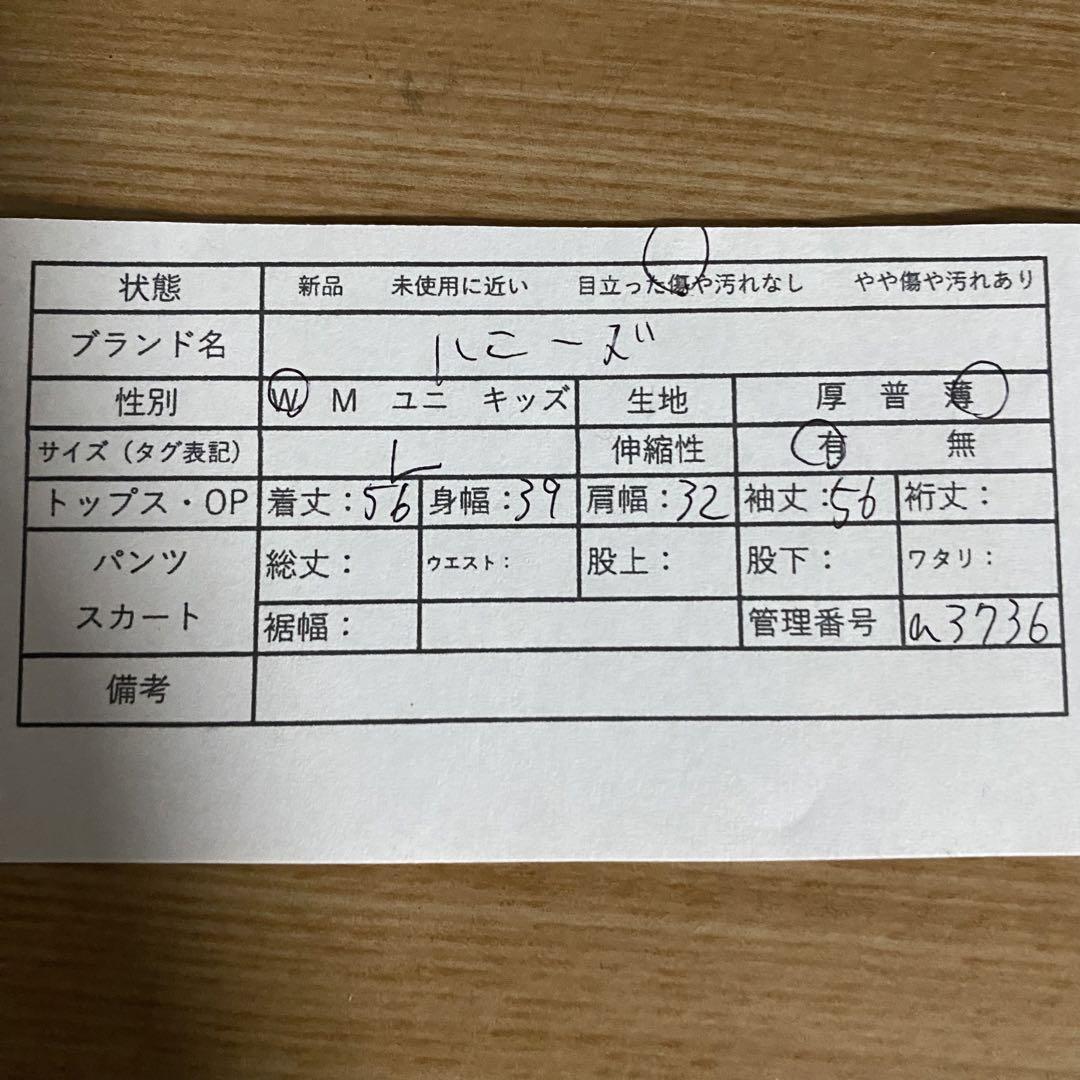 状態 新品 未使用に近い 目立った傷や汚れなし やや傷や汚れあり
ブランド名 ハニーズ
性別 W M ユニ キッズ 生地 厚 普 薄
サイズ（タグ表記） L 伸縮性 有 無
トップス・OP 着丈：56 身幅：39 肩幅：32 袖丈：56 裄丈：
パンツ 総丈： ウエスト： 股上： 股下： ワタリ：
スカート 裾幅： 管理番号 a3736
備考